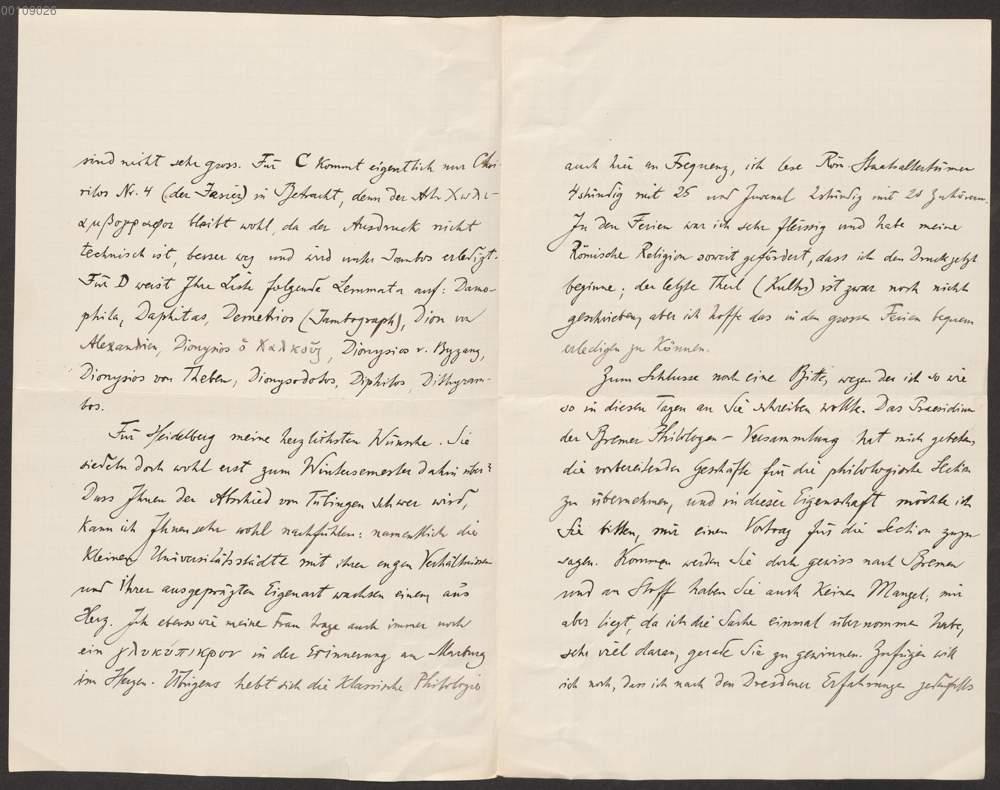 00109026
sind nicht sehr gross. Für C kommt eigentlich nur Choi-
rilos Nr. 4 (der Iasier) in Betracht, denn der Art. Χωλι-
αμβογραφοι bleibt wohl, da der Ausdruck nicht
technisch ist, besser weg und wird unter Iambos erledigt.
Für D weist Ihre Liste folgende Lemmata auf: Damo-
phila, Daphitas, Demetrios (Iambograph), Dion von
Alexandrien, Dionysios ὁ Χαλκοῦς, Dionysios v. Byzanz,
Dionysios von Theben, Dionysodotos, Diphilos, Dithyram-
bos.
Für Heidelberg meine herzlichsten Wünsche. Sie
siedeln doch wohl erst zum Wintersemester dahin über?
Dass Ihnen der Abschied von Tübingen schwer wird,
kann ich Ihnen sehr wohl nachfühlen: namentlich die
kleinen Universitätsstädte mit ihren engen Verhältnissen
und ihrer ausgeprägten Eigenart wachsen einem ans
Herz. Ich ebenso wie meine Frau trage auch immer noch
ein γλυκύπικρον in der Erinnerung an Marburg
im Herzen. Übrigens hebt sich die klassische Philologie
auch hier an Frequenz, ich lese Röm. Staatsaltertümer
4stündig mit 25 und Juvenal 2stündig mit 20 Zuhörern.
In den Ferien war ich sehr fleissig und habe meine
Römische Religion soweit gefördert, dass ich den Druck jetzt
beginne; der letzte Theil (Kultus) ist zwar noch nicht
geschrieben, aber ich hoffe das in den grossen Ferien bequem
erledigen zu können.
Zum Schlusse noch eine Bitte, wegen der ich so wie
so in diesen Tagen an Sie schreiben wollte. Das Praesidium
der Bremer Philologen-Versammlung hat mich gebeten,
die vorbereitenden Geschäfte für die philologische Section
zu übernehmen, und in dieser Eigenschaft möchte ich
Sie bitten, mir einen Vortrag für die Section zuzu-
sagen. Kommen werden Sie doch gewiss nach Bremen
und an Stoff haben Sie auch keinen Mangel; mir
aber liegt, da ich die Sache einmal übernommen habe,
sehr viel daran, gerade Sie zu gewinnen. Zufügen will
ich noch, dass ich nach den Dresdener Erfahrungen jedenfalls